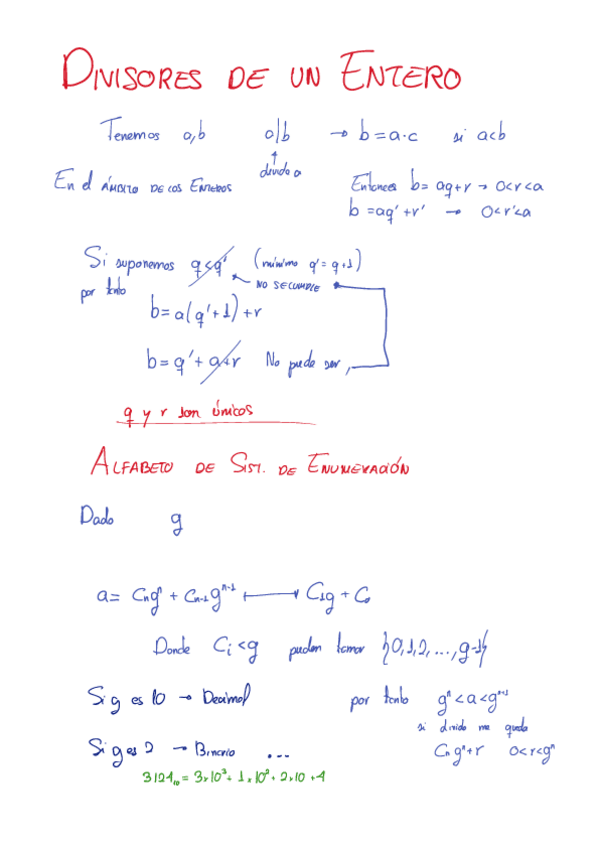 DIVISORES DE UN ENTERO
Tenemos a,b a|b → b = a·c si a<b
↑
divide a
En el ÁMBITO DE LOS ENTEROS
Entonces b = aq+r → 0<r<a
b = aq'+r' → 0<r'<a
Si suponemos q<q' (mínimo q' = q+1)
por tanto NO SE CUMPLE
b = a(q'+1)+r
b = q'+a+r No puede ser,
q y r son únicos
ALFABETO DE SIST. DE ENUMERACIÓN
Dado g
a = Cₙgⁿ + Cₙ₋₁gⁿ⁻¹ ⟼ C₁g + C₀
Donde Cᵢ<g pueden tomar {0,1,2,...,g-1}
Si g es 10 → Decimal por tanto gⁿ<a<gⁿ⁺¹
si divido me queda
Si g es 2 → Binario ... Cₙgⁿ+r 0<r<gⁿ
3121₁₀ = 3×10³+ 1×10²+ 2×10 +1